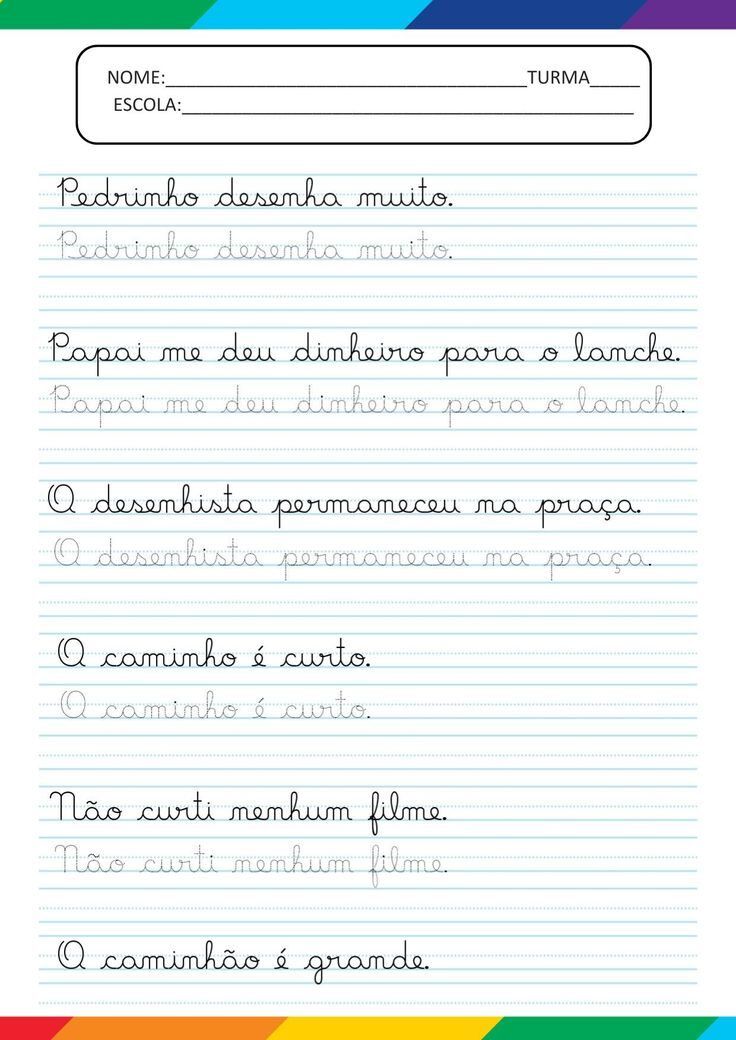 NOME:____________________________________TURMA_____
ESCOLA:_____________________________________________
Pedrinho desenha muito.
Pedrinho desenha muito.
Papai me deu dinheiro para o lanche.
Papai me deu dinheiro para o lanche.
O desenhista permaneceu na praça.
O desenhista permaneceu na praça.
O caminho é curto.
O caminho é curto.
Não curti nenhum filme.
Não curti nenhum filme.
O caminhão é grande.